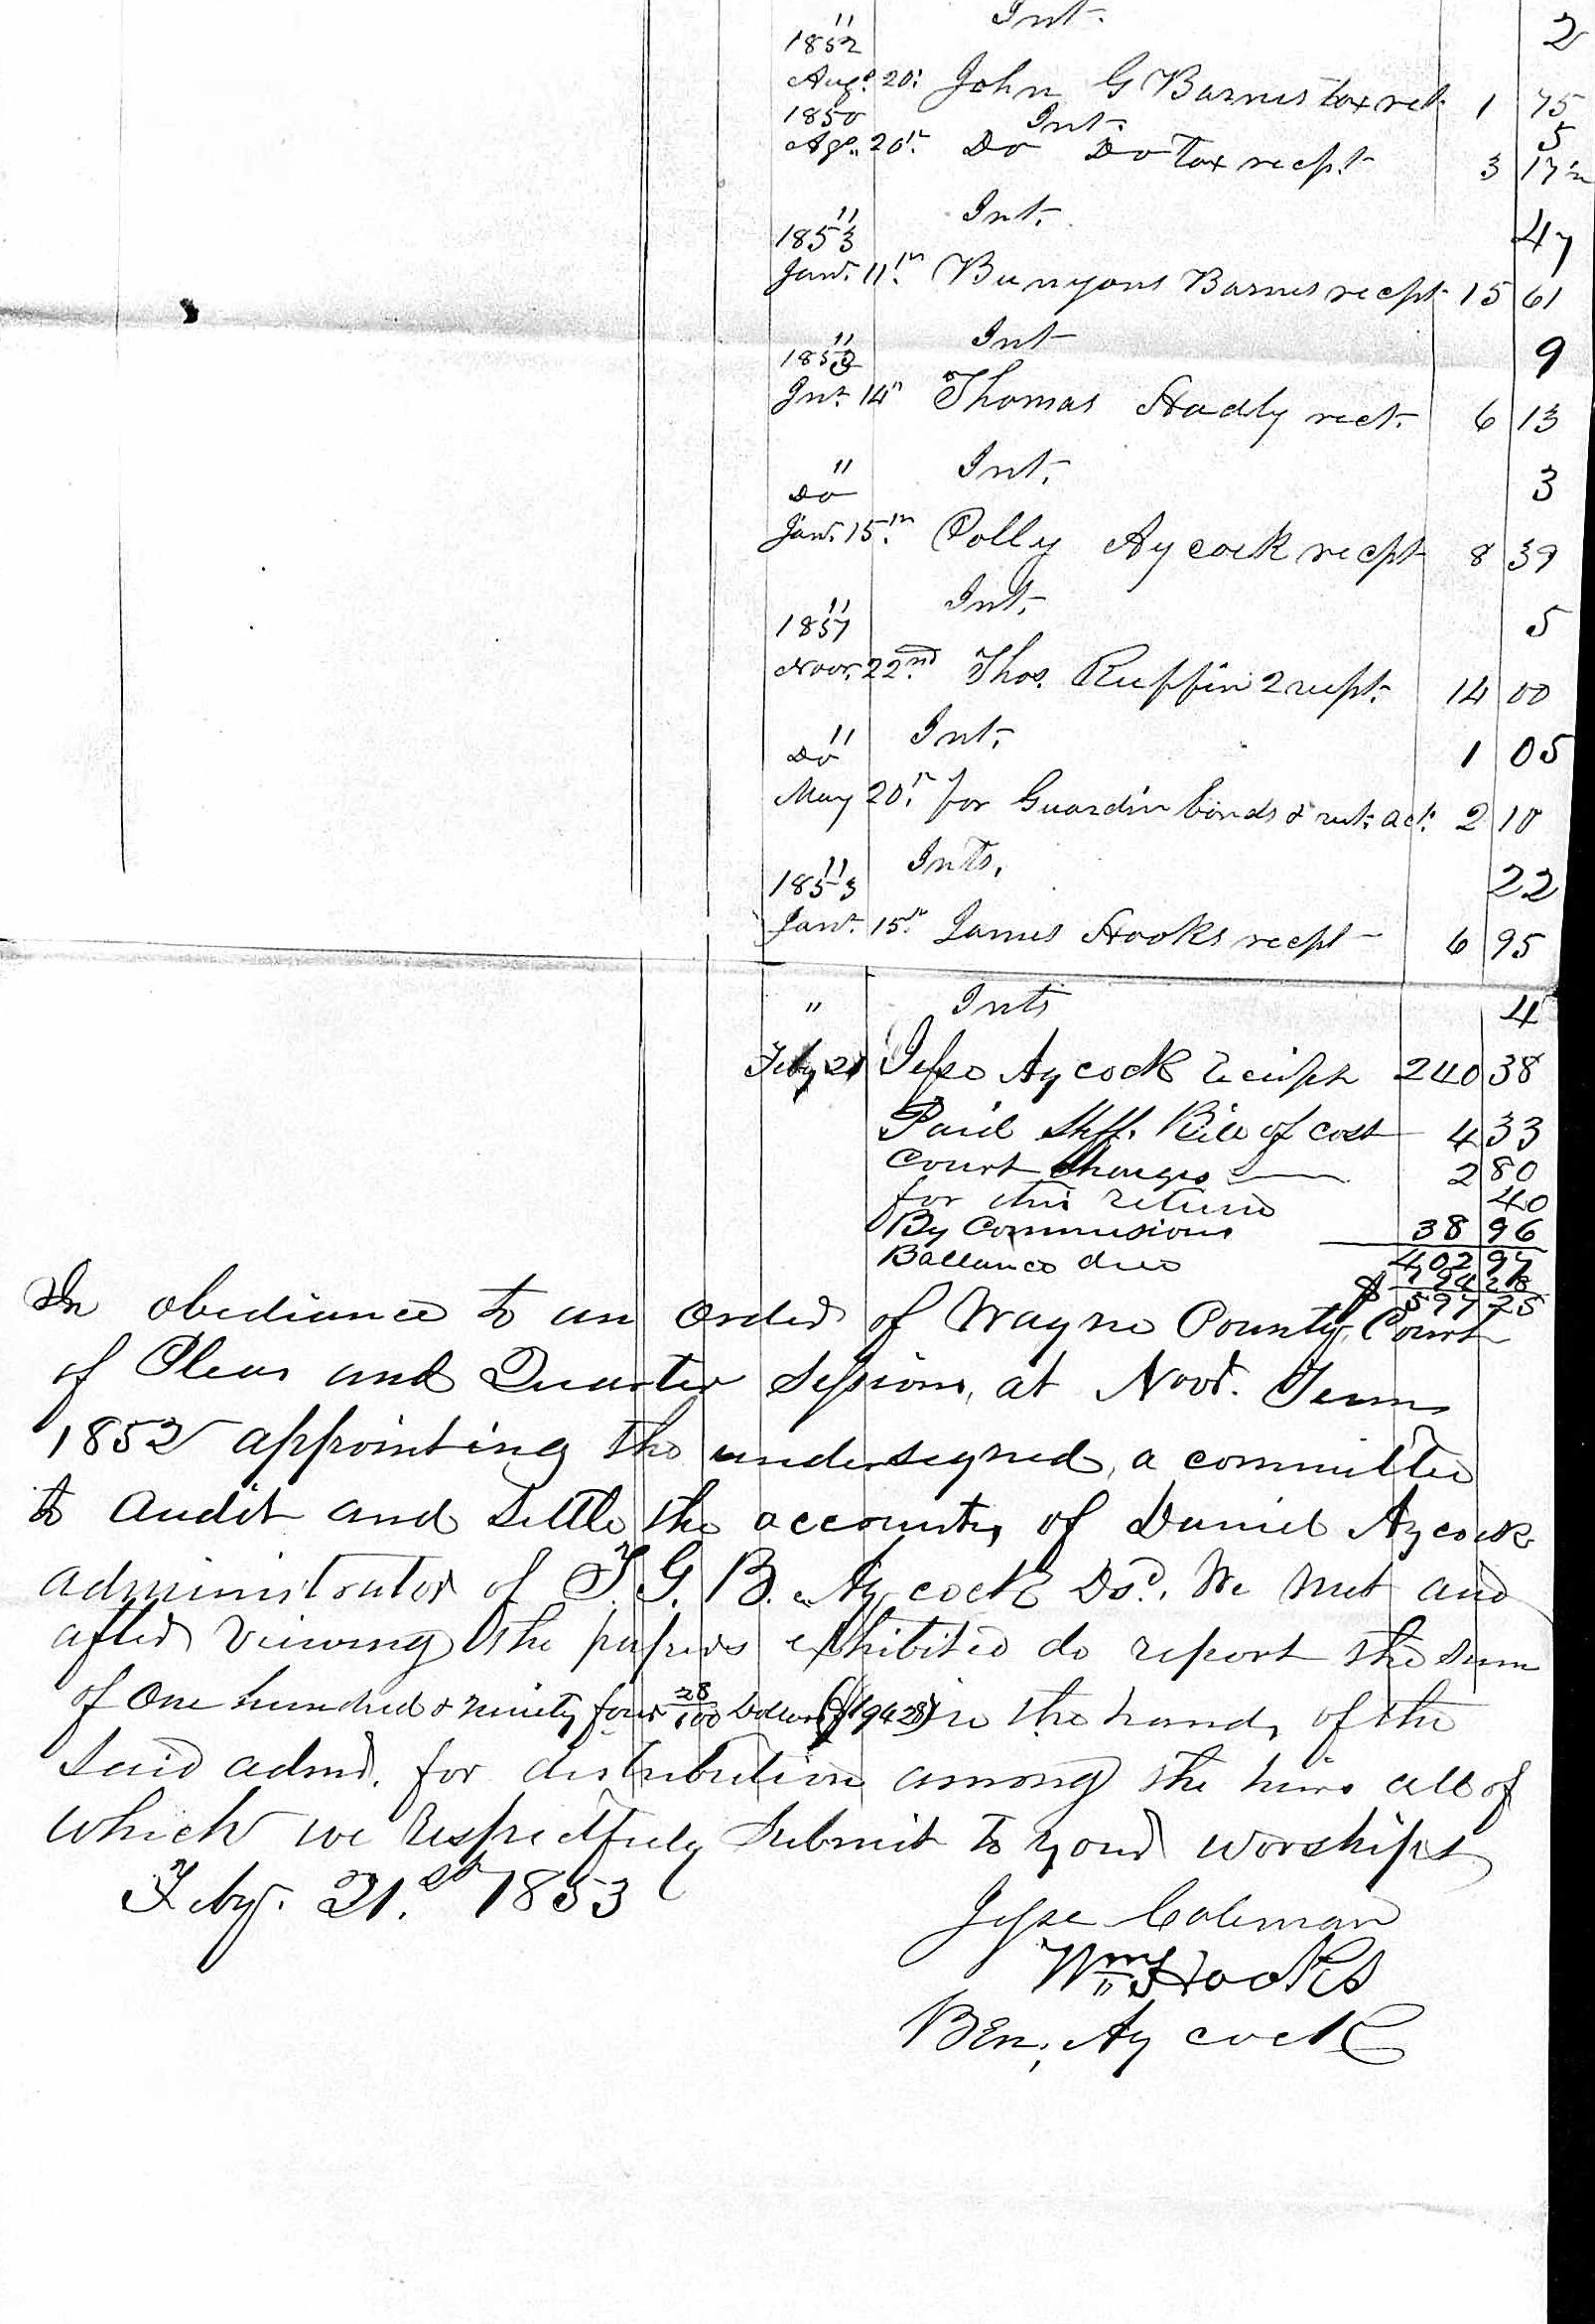 " Int. 2
1852
Augt. 20th John G Barnes tax rect. 1 75
1850 Int. 5
Agt. 20th Do Do Tax recpt 3 17½
" Int. 47
1853
Jan. 11th Bunyons Barnes recpt 15 61
" Int 9
1853
Jnr. 14th Thomas Hadly rect. 6 13
" Int. 3
Do
Jan. 15th Polly Aycock recpt 8 39
" Int. 5
1851
Novr. 22nd Thos. Ruffin 2 recpt. 14 00
" Int. 1 05
Do
May 20th for Guardin bonds & rect. act. 2 10
" Ints. 22
1853
Jany. 15th James Hooks recpt 6 95
" Ints 4
Feby 21 Jesse Aycock Receipt 240 38
Paid Shff. Bill of cost 4 33
Court Charges 2 80
for this return 40
By Commissions 38 96
402 97
Ballance due 194 28
$ 597 25
In obediance to an order of Wayne County Court
of Pleas and Quarter Sessions, at Novr. Term
1852 appointing the undersigned, a committee
to audit and settle the accounts, of Daniel Aycock
administrator of T. G. B. Aycock Dsd. We met and
after viewing the papers exhibited do report the sum
of One hundred & ninety four 28/100 Dollars ($194 28) in the hands of the
said admr. for distribution among the hirs all of
which we respectfuly submit to your worships
Feby. 21.st 1853
Jesse Coleman
Wm Hooks
Ben; Aycock